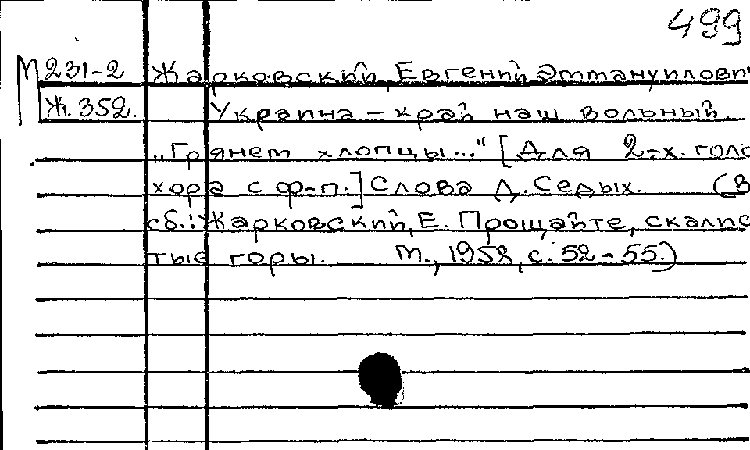 499
М 231-2 Жарковский, Евгений Эммануилович
Ж 352. Украина – край наш вольный.
„Грянем хлопцы..." [Для 2-х. голо
хора с ф-п.] Слова Д. Седых. (В
сб.: Жарковский, Е. Прощайте, скалис
тые горы. М., 1958, с. 52-55.)